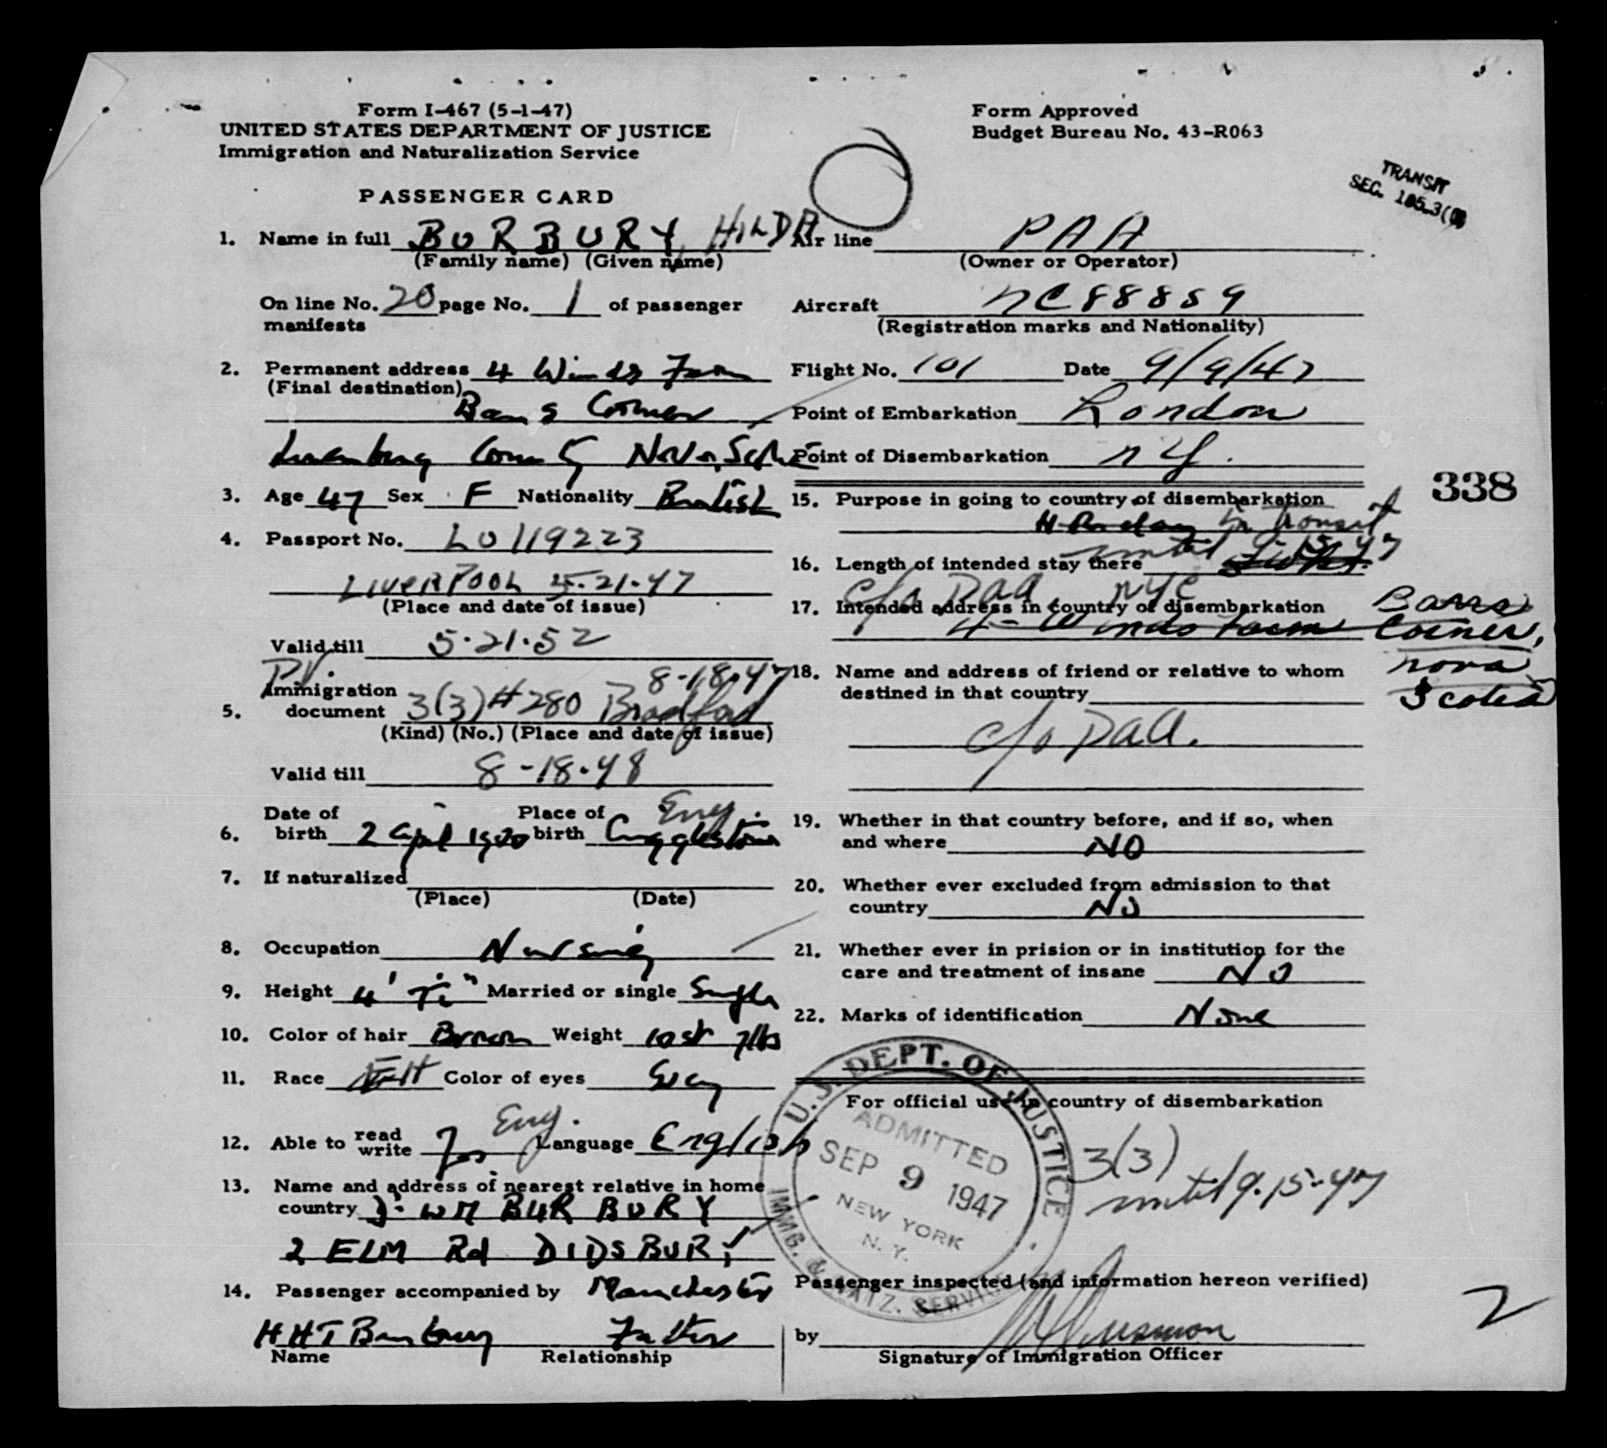 Form I-467 (5-1-47)
UNITED STATES DEPARTMENT OF JUSTICE
Immigration and Naturalization Service
PASSENGER CARD
Form Approved
Budget Bureau No. 43-R063
TRANSIT
SEC. 105.3(
1. Name in full BURBURY, HILDA
(Family name) (Given name)
On line No. 20 page No. 1 of passenger
manifests
2. Permanent address 4 Winds Farm
(Final destination)
Barrs Corner
Lunenburg County Nova Scotia
3. Age 47 Sex F Nationality British
4. Passport No. LO119223
LIVERPOOL 5.21.47
(Place and date of issue)
Valid till 5.21.52
P.V. 8-18.47
Immigration
5. document 3(3) # 280 Bradford
(Kind) (No.) (Place and date of issue)
Valid till 8-18-48
Date of Place of Eng.
6. birth 2 April 1900 birth
7. If naturalized
(Place) (Date)
8. Occupation Nursing
9. Height 4' Married or single Single
10. Color of hair Brown Weight 10 st 7lbs
11. Race Color of eyes Grey
Eng.
12. Able to read write Yes Language English
13. Name and address of nearest relative in home
country WM BURBURY
2 ELM Rd DIDSBURY
14. Passenger accompanied by Manchester
HHT Burbury Father
Name Relationship
Air line PAA
(Owner or Operator)
Aircraft NC88859
(Registration marks and Nationality)
Flight No. 101 Date 9/9/47
Point of Embarkation London
Point of Disembarkation NY.
338
15. Purpose in going to country of disembarkation
Holiday In transit
until 9.15.47
16. Length of intended stay there
c/o PAA NYC
17. Intended address in country of disembarkation
4-Winds Farm Barrs Corner,
Nova Scotia
18. Name and address of friend or relative to whom
destined in that country
c/o PAA.
19. Whether in that country before, and if so, when
and where NO
20. Whether ever excluded from admission to that
country No
21. Whether ever in prision or in institution for the
care and treatment of insane No
22. Marks of identification None
For official use in country of disembarkation
U.S. DEPT. OF JUSTICE
ADMITTED
SEP 9 1947
NEW YORK
N.Y.
IMMIG. & NATZ. SERVICE
3(3)
until 9.15-47
Passenger inspected (and information hereon verified)
by
Signature of Immigration Officer
2